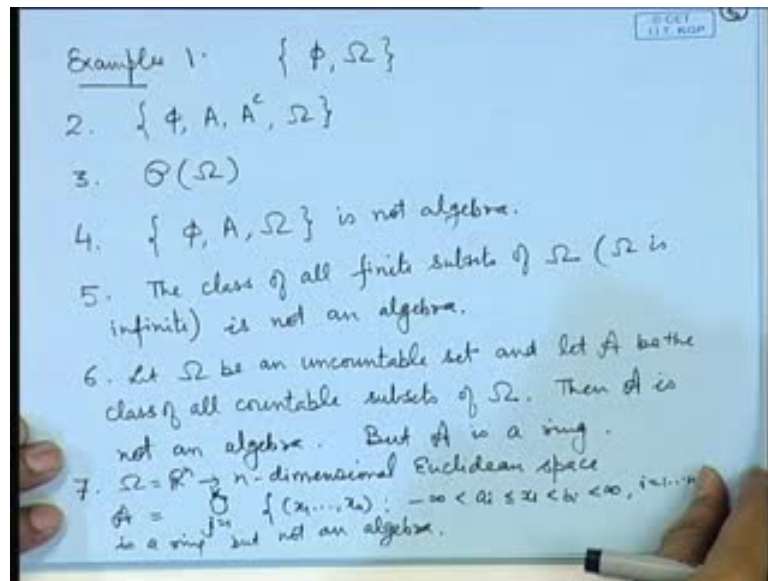 © CET
I.I.T. KGP
Examples 1. { φ, Ω }
2. { φ, A, Aᶜ, Ω }
3. 𝒫(Ω)
4. { φ, A, Ω } is not algebra.
5. The class of all finite subsets of Ω (Ω is
infinite) is not an algebra.
6. Let Ω be an uncountable set and let 𝒜 be the
class of all countable subsets of Ω. Then 𝒜 is
not an algebra. But 𝒜 is a ring.
7. Ω = ℝⁿ → n-dimensional Euclidean space
𝒜 = ∪ j=1 { (x₁, ..., xₙ) : -∞ < aᵢ ≤ xᵢ < bᵢ < ∞, i=1...n
is a ring but not an algebra.